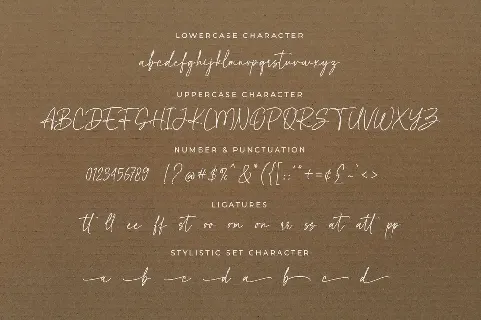 LOWERCASE CHARACTER
abcdefghijklmnopqrstuvwxyz
UPPERCASE CHARACTER
ABCDEFGHIJKLMNOPQRSTUVWXYZ
NUMBER & PUNCTUATION
0123456789 !?@#$%^&*({[:;"°+=¢£~`<>
LIGATURES
tl ll ee ff st oo om on rr ss at atl pp
STYLISTIC SET CHARACTER
a b c d a b c d